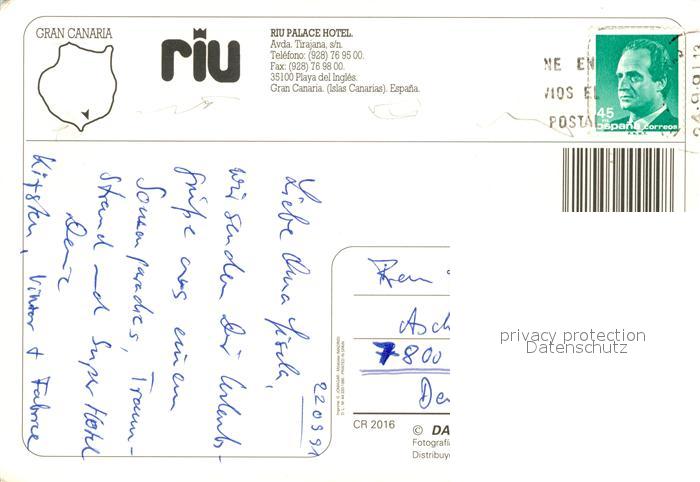 GRAN CANARIA
riu
RIU PALACE HOTEL.
Avda. Tirajana, s/n.
Teléfono: (928) 76 95 00.
Fax: (928) 76 98 00.
35100 Playa del Inglés.
Gran Canaria. (Islas Canarias). España.
NE EN
VIOS EL
POSTAL
45
españa correos
220991
Liebe Oma Gisela,
wir senden Dir Urlaubs-
grüße aus einem
Sonnenparadies, Traum-
strand und Super Hotel
Deine
Kirsten, Viktor + Fabrice
Frau
Asch
7800
CR 2016
© DA
Fotografí
Distribuye
privacy protection
Datenschutz